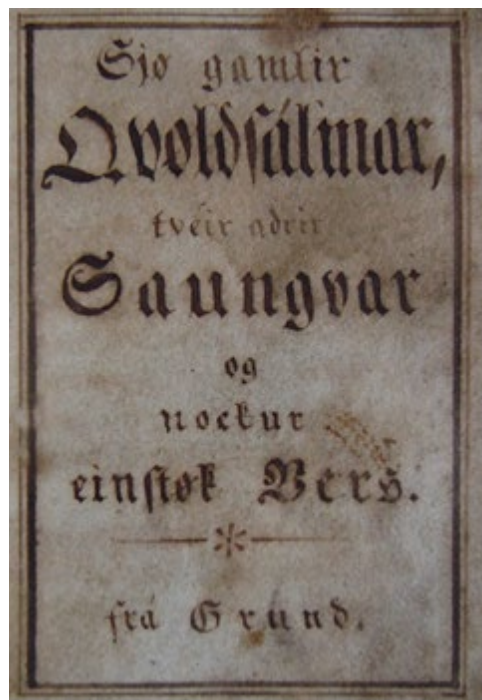 Sjo gamlir
Qvoldsálmar,
tveir adrir
Saungvar
og
nockur
einstok Vers.
frá Grund.